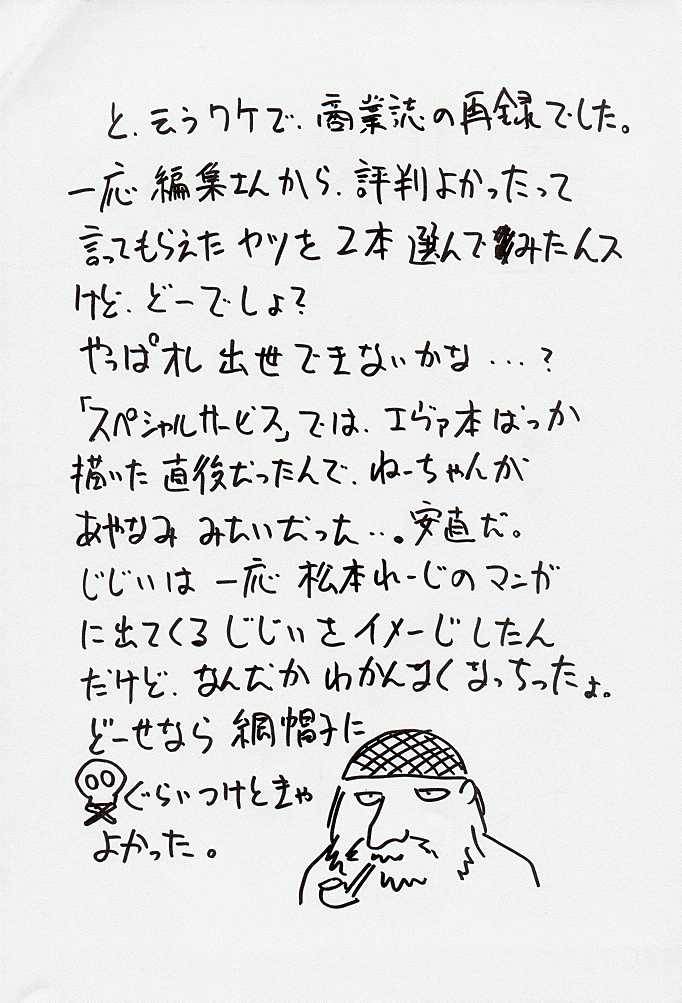 と、云うワケで、商業誌の再録でした。
一応 編集さんから、評判よかったって
言ってもらえた ヤツを 2本 選んでみたんス
けど、どーでしょ?
やっぱオレ 出世できないかな…?
「スペシャルサービス」では、エヴァ本ばっか
描いた 直後だったんで、ねーちゃんが
あやなみ みたいだった…。安直だ。
じじいは 一応 松本れーじのマンガ
に出てくる じじいをイメージしたん
だけど、なんだか わかんなくなっちったよ。
どーせなら 網帽子に
ぐらいつけときゃ
よかった。